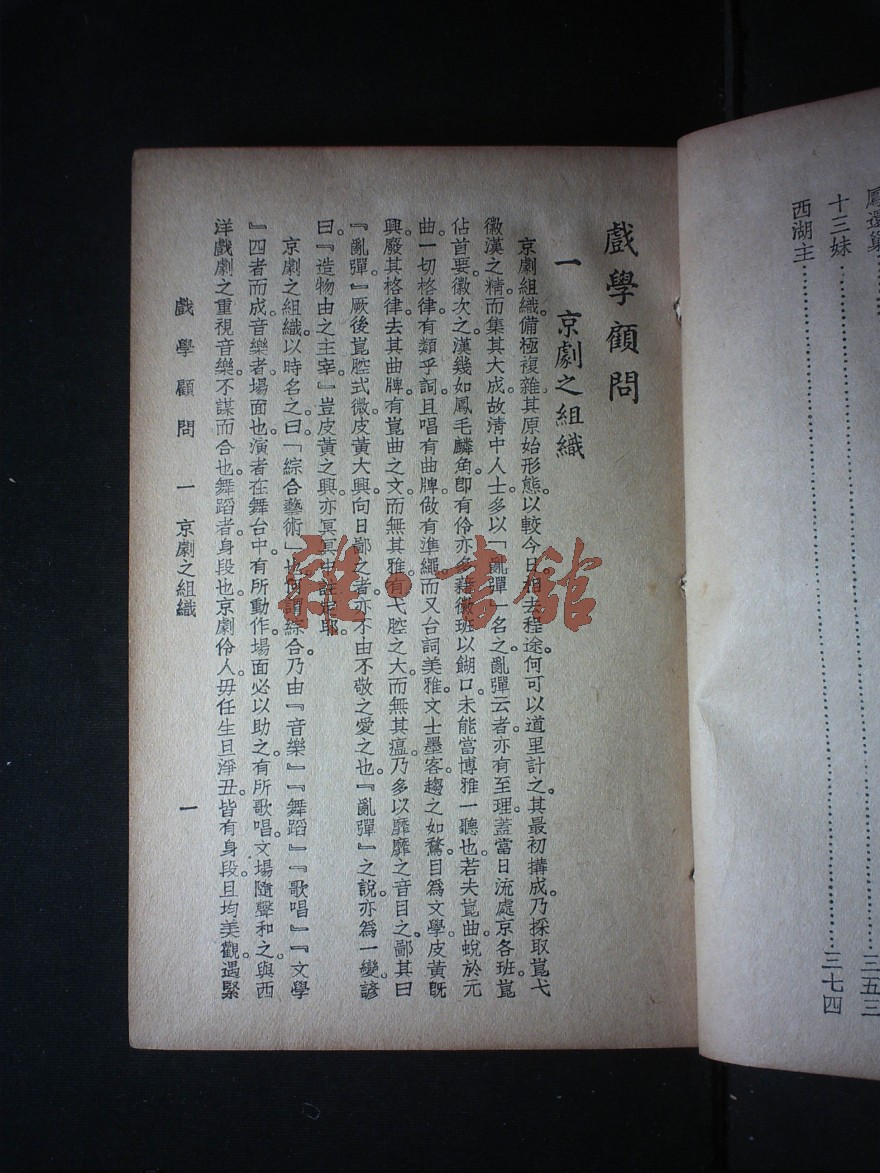 鳳還巢……三五三
十三妹……三七四
西湖主……
戲學顧問
一 京劇之組織
京劇組織。備極複雜。其原始形態。以較今日。相去程途。何可以道里計之。其最初搆成。乃採取崑弋
徽漢之精。而集其大成。故清中人士。多以「亂彈」名之。亂彈云者。亦有至理。蓋當日流處京各班。崑
佔首要。徽次之。漢幾如鳳毛麟角。卽有伶亦多藉徽班以餬口。未能當博雅一聽也。若夫崑曲。蛻於元
曲。一切格律。有類乎詞。且唱有曲牌。做有準繩。而又台詞美雅。文士墨客。趨之如鶩。目爲文學。皮黃旣
興。廢其格律。去其曲牌。有崑曲之文。而無其雅。有弋腔之大。而無其瘟。乃多以靡靡之音目之。鄙其曰
『亂彈』。厥後崑腔式微。皮黃大興。向日鄙之者。亦不由不敬之愛之也。『亂彈』之說。亦爲一變。諺
曰。『造物由之主宰』。豈皮黃之興。亦冥冥中註定耶。
京劇之組織。以時名之曰「綜合藝術」也。何謂綜合。乃由『音樂』『舞蹈』『歌唱』『文學
』四者而成。音樂者。場面也。演者在舞台中。有所動作。場面必以助之。有所歌唱。文場隨聲和之。與西
洋戲劇之重視音樂。不謀而合也。舞蹈者。身段也。京劇伶人。毋任生旦淨丑。皆有身段。且均美觀。遇緊
戲學顧問 一 京劇之組織 一
雜·書館